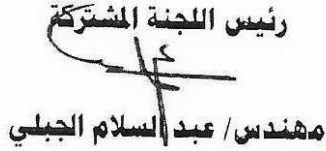 رئيس اللجنة المشتركة
مهندس/ عبد السلام الجبلي